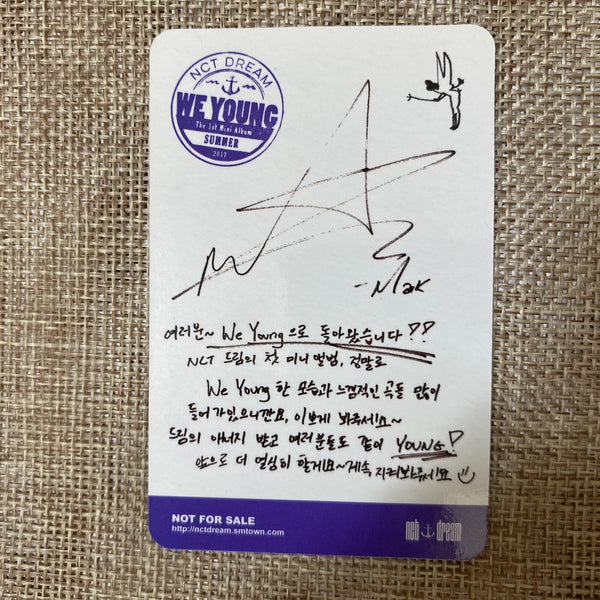 NCT DREAM
WE YOUNG
The 1st Mini Album
SUMMER
2017
-Mark
여러분~ We Young으로 돌아왔습니다!?
NCT 드림의 첫 미니 앨범, 정말로
We Young 한 모습과 느낌적인 곡들 많이
들어가있으니깐요, 이쁘게 봐주세요~
드림의 에너지 받고 여러분들도 같이 YOUNG!
앞으로 더 열심히 할게요~계속 지켜봐주세요
NOT FOR SALE
http://nctdream.smtown.com
nct dream